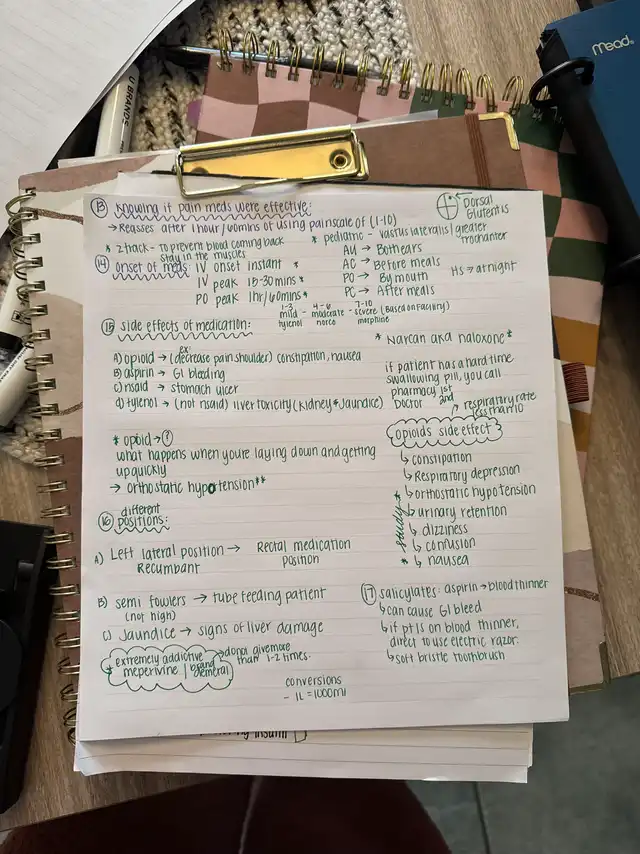 Mead
U BRANDS
⑬ Knowing if pain meds were effective:
→ Reasses after 1 hour/60mins of using painscale of (1-10)
Dorsal
Glutentis
* ztrack - to prevent blood coming back
stay in the muscles
* pediatric - vastus lateralis | greater
trochanter
⑭ onset of meds: IV onset instant *
IV peak 15-30mins *
PO peak 1hr/60mins*
AU → Both ears
AC → Before meals
PO → By mouth
PC → After meals
HS → at night
1-3 4-6 7-10
mild - moderate - severe (Based on facility)
tylenol norco morphine
⑮ side effects of medication:
* Narcan aka naloxone *
ex:
A) opioid → (decrease pain shoulder) constipation, nausea
B) aspirin → GI bleeding
C) nsaid → stomach ulcer
d) tylenol → (not nsaid) liver toxicity (Kidney & Jaundice)
if patient has a hard time
swallowing pill, you call
pharmacy 1st
Doctor 2nd
respiratory rate
less than 10
opioids side effect
↳ constipation
↳ Respiratory depression
↳ orthostatic hypotension
↳ urinary retention
↳ dizziness
↳ confusion
↳ nausea
* study *
* opioid → ?
what happens when youre laying down and getting
up quickly
→ orthostatic hypotension**
different
⑯ positions:
A) Left lateral position → Rectal medication
Recumbant position
B) semi fowlers → tube feeding patient
(not high)
C) Jaundice → signs of liver damage
* extremely addictive
meperivine | brand demeral
→ donot givemore
than 1-2 times.
⑰ salicylates: aspirin → blood thinner
↳ can cause GI bleed
↳ if pt is on blood thinner,
direct to use electric razor.
↳ soft bristle toothbrush
conversions
- 1L = 1000ml
insulin